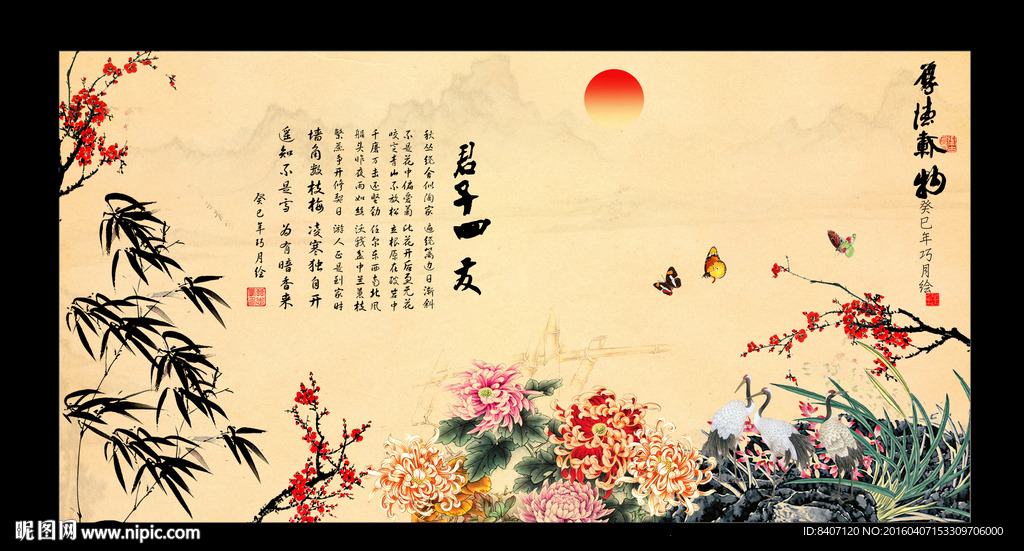 厚德載物
癸巳年巧月绘
君子四友
秋丛绕舍似陶家 遍绕篱边日渐斜
不是花中偏爱菊 此花开后更无花
咬定青山不放松 立根原在破岩中
千磨万击还坚劲 任尔东西南北风
船头昨夜雨如丝 沃我盆中兰蕙枝
繁蕊争开修契日 游人正是到家时
墙角数枝梅 凌寒独自开
遥知不是雪 为有暗香来
癸巳年巧月绘
昵图网 www.nipic.com
ID:8407120 NO:20160407153309706000